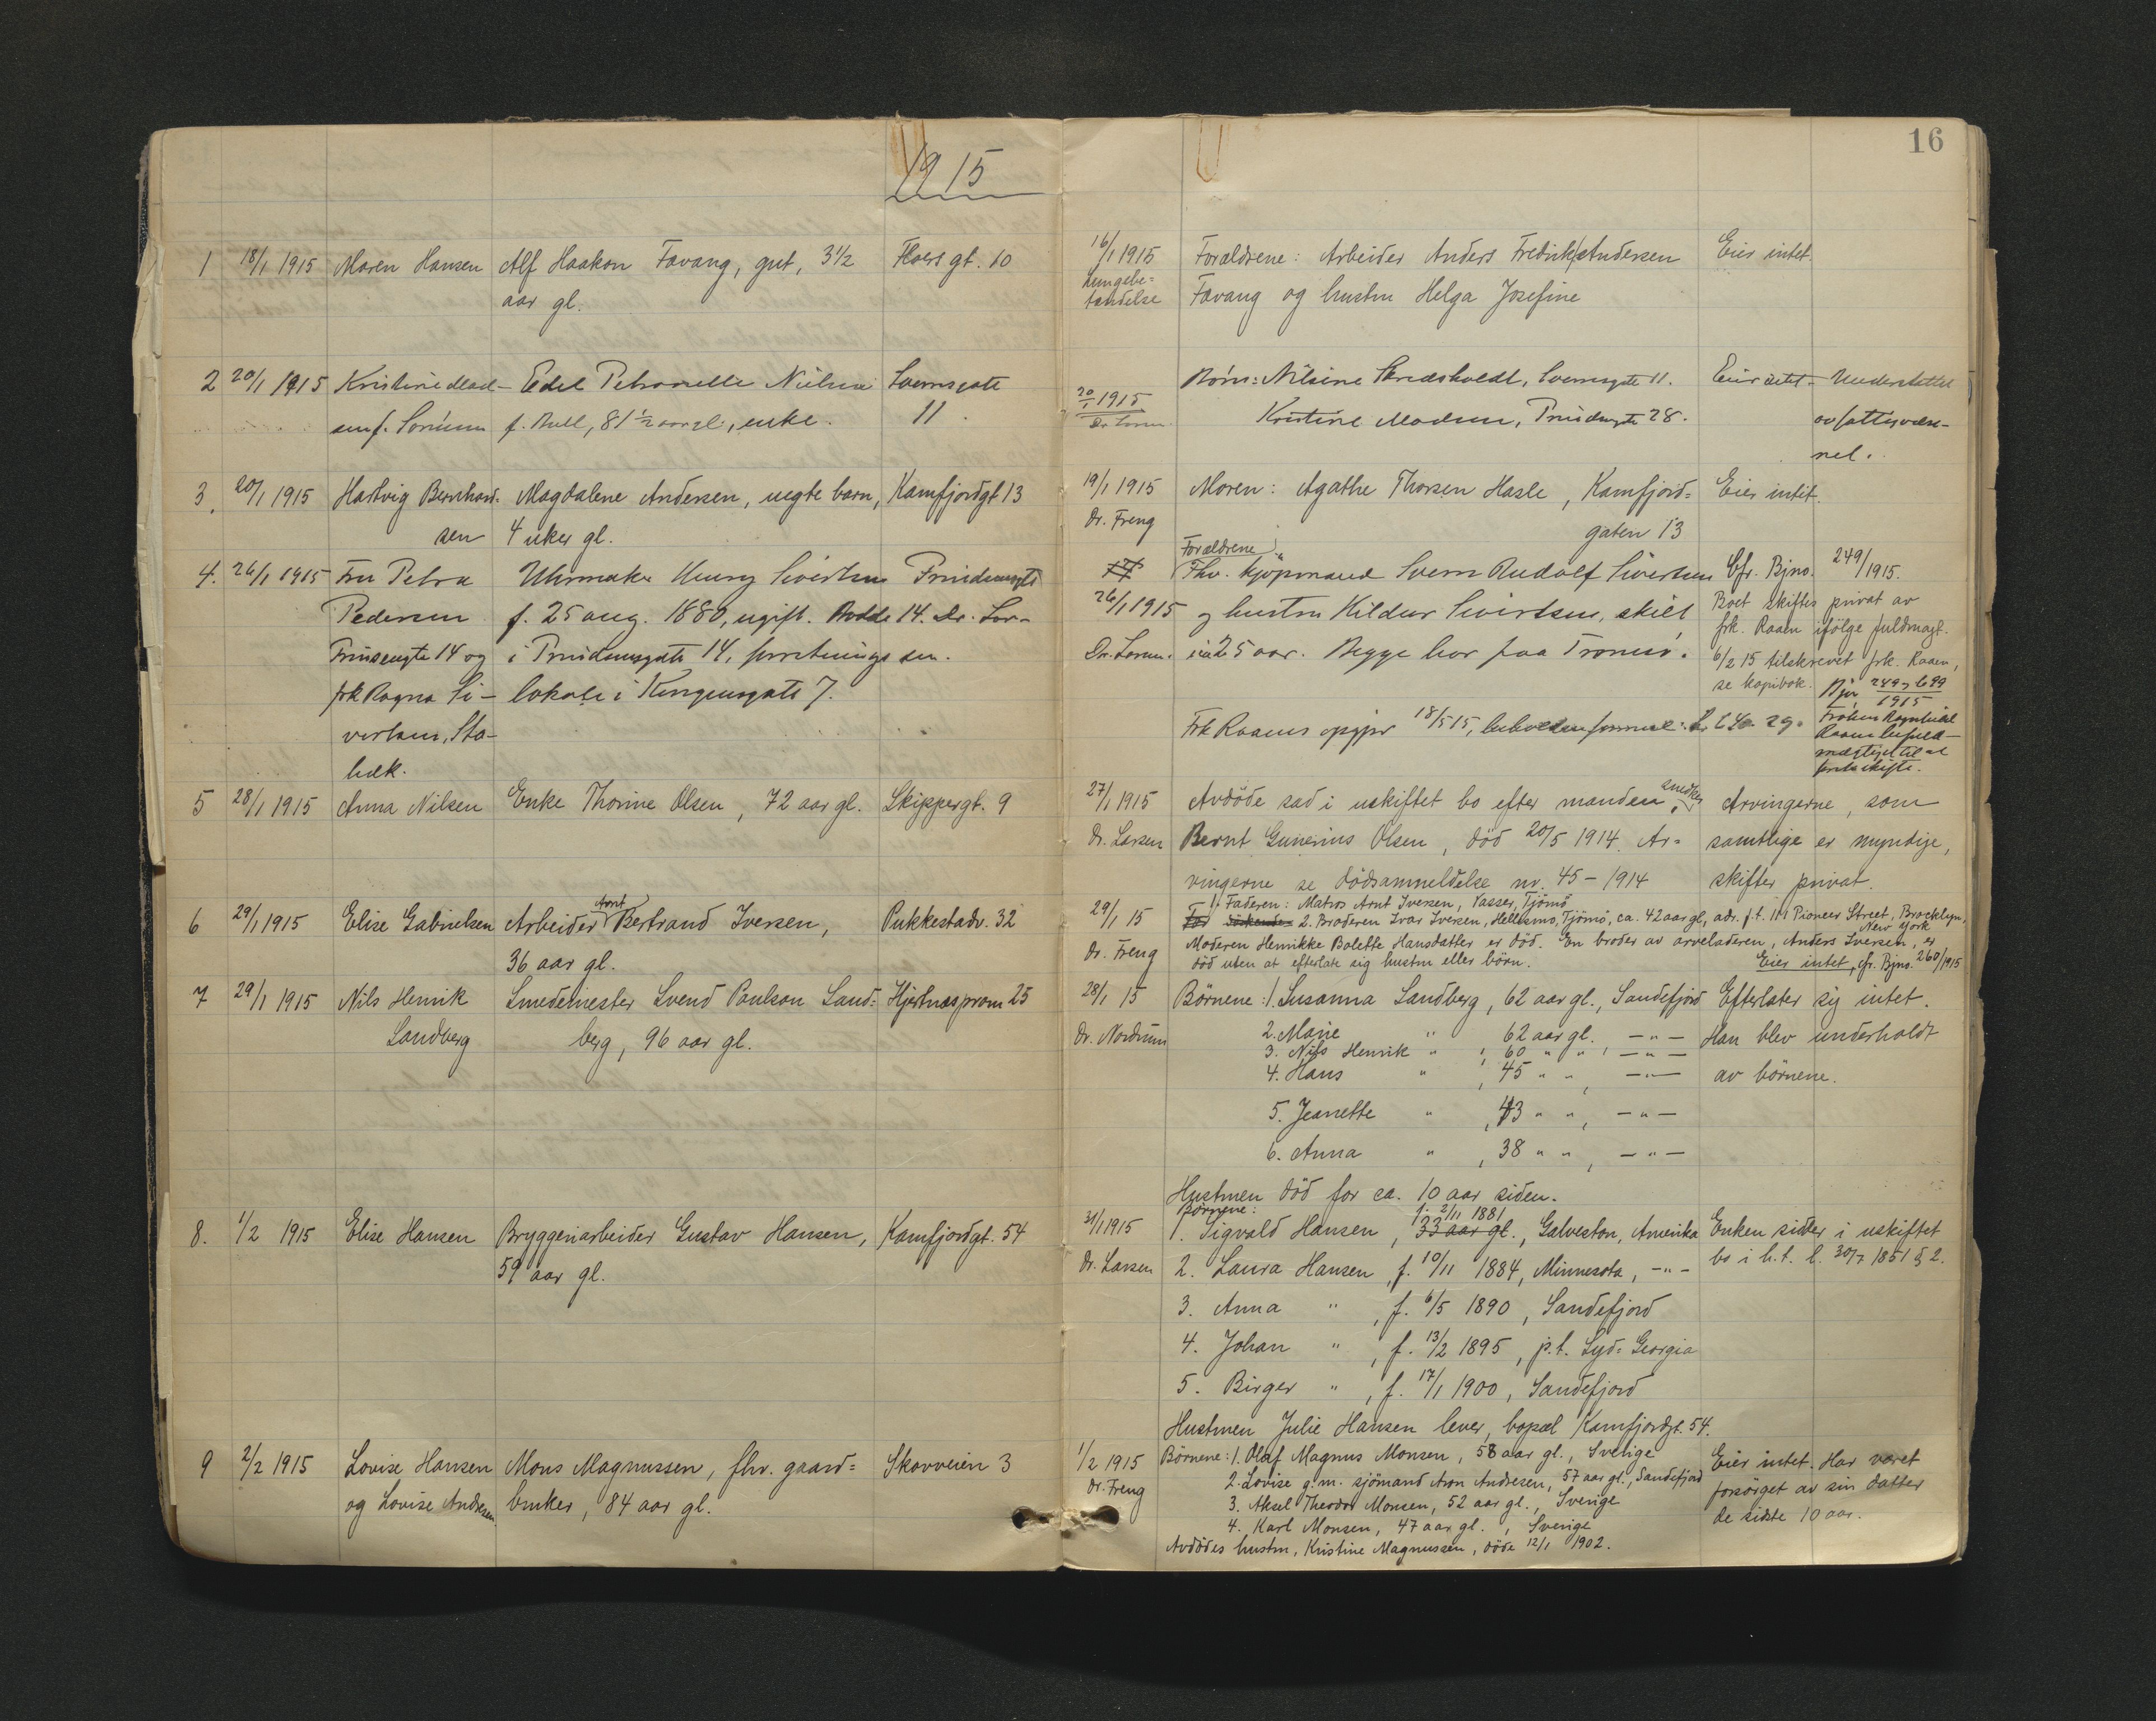 1915
16
1 18/1 1915 Maren Hansen Alf Haakon Favang, gut, 3½ Thors gt. 10
aar gl.
16/1 1915 Forældrene: Arbeider Anders Fredrik Andersen Eier intet.
Lungebe=
tændelse Favang og hustru Helga Josefine
2 20/1 1915 Kristine Mad- Edel Petronelle Nielsen Svensgate
sen f. f. Bull, 81½ aar gl., enke. 11.
20/1 1915 Børn: Nilsine Svensgate 11. Eier intet - Understøttet
Kristine Madsen, Prindsensgte 28. av fattigvæse-
net.
3. 20/1 1915 Hartvig Bernhard- Magdalene Andersen, uegte barn, Kamfjordgt 13
sen 4 uker gl.
19/1 1915 Moren: Agathe Thorsen Hasle, Kamfjord= Eier intet.
Dr. Freng gaten 13
4. 26/1 1915 Fru Petra Uhrmaker Sivertsen Prindsensgte
Pedersen f. 25 aug. 1880, ugift. Bodde 14. Dr. Lor-
Prinsensgte 14 og i Prindsensgate 14, forretnings sen.
frk Ragna Si- lokale i Kongensgate 7.
vertsen, Sta-
bæk.
Forældrene
Fhv. kjøpmand Svem Rudolf Sivertsen Cfr. Bjno. 249/1915.
26/1 1915 og hustru Hildur Sivertsen, skilt Boet skiftes privat av
frk. Raaen ifölge fuldmagt.
i ca 25 aar. Begge bor paa Tromsö. 6/2 15 tilskrevet frk. Raaen,
se kopibok. Bjn 249 og 699
1915
Frk Raaens opgjør 18/5 15, Frøken Ragnhild
Raaen befuld-
mægtiget til at
5 28/1 1915 Anna Nilsen Enke Thorine Olsen, 72 aar gl. Skippergt. 9
27/1 1915 Avdöde sad i uskiftet bo efter manden, snedker Arvingerne, som
Dr. Larsen Bernt Gunerius Olsen, död 20/5 1914. Ar= samtlige er myndige,
vingerne se dödsanmeldelse nr. 45 - 1914 skifter privat.
6 29/1 1915 Elise Gabrielsen Arbeider Arnt Bertrand Iversen, Pukkestadv. 32
36 aar gl.
1. Faderen: Matros Arnt Iversen, Vasser, Tjömö
29/1 15 2. Broderen Ivar Iversen, Hellesmo, Tjömö, ca. 42 aar gl, adr. p.t. 111 Pioneer Street, Brocklyn,
New York
Moderen Henrikke Bolette Hansdatter er död. En broder av arveladeren, Anders Iversen, er
Dr. Freng död uten at efterlate sig hustru eller börn. Eier intet, cfr. Bjno. 260/1915
7 29/1 1915 Nils Henrik Smedemester Svend Paulson Sand= Hjertnæsprom 25
Sandberg berg, 96 aar gl.
28/1 15 Börnene: 1. Susanna Sandberg, 62 aar gl., Sandefjord Efterlater sig intet.
Dr. Nordrum 2. Marie " 62 aar gl. - " - Han blev underholdt
3. Nils Henrik " , 60 " " , - " -
4. Hans " , 45 " " , - " - av börnene.
5. Jeanette " , 43 " " , - " -
6. Anna " , 38 " " , - " -
Hustruen död for ca. 10 aar siden.
8. 1/2 1915 Elise Hansen Bryggeriarbeider Gustav Hansen, Kamfjordgt. 54
59 aar gl.
Börnene: f. 2/11 1881
31/1 1915 1. Sigvald Hansen, 33 aar gl., Galveston, Amerika Enken sidder i uskiftet
Dr. Larsen 2. Laura Hansen, f. 10/11 1884, Minnesota, - " - bo i h.t. l. 30/7 1851 § 2.
3. Anna " , f. 6/5 1890, Sandefjord
4. Johan " , f. 13/2 1895, p.t. Syd= Georgia
5. Birger " , f. 17/1 1900, Sandefjord
Hustruen Julie Hansen lever, bopæl Kamfjordgt. 54.
9 2/2 1915 Lovise Hansen Mons Magnussen, fhv. gaard= Skovveien 3
og Lovise Andresen. bruker, 84 aar gl.
1/2 1915 Börnene: 1. Olaf Magnus Monsen, 58 aar gl., Sverige Eier intet. Har været
Dr. Freng 2. Lovise g.m. sjömand Aron Andresen, 57 aar gl., Sandefjord forsörget av sin datter
3. Aksel Theodor Monsen, 52 aar gl., Sverige de sidste 10 aar.
4. Karl Monsen, 47 aar gl., Sverige
Avdödes hustru, Kristine Magnussen, döde 12/1 1902.